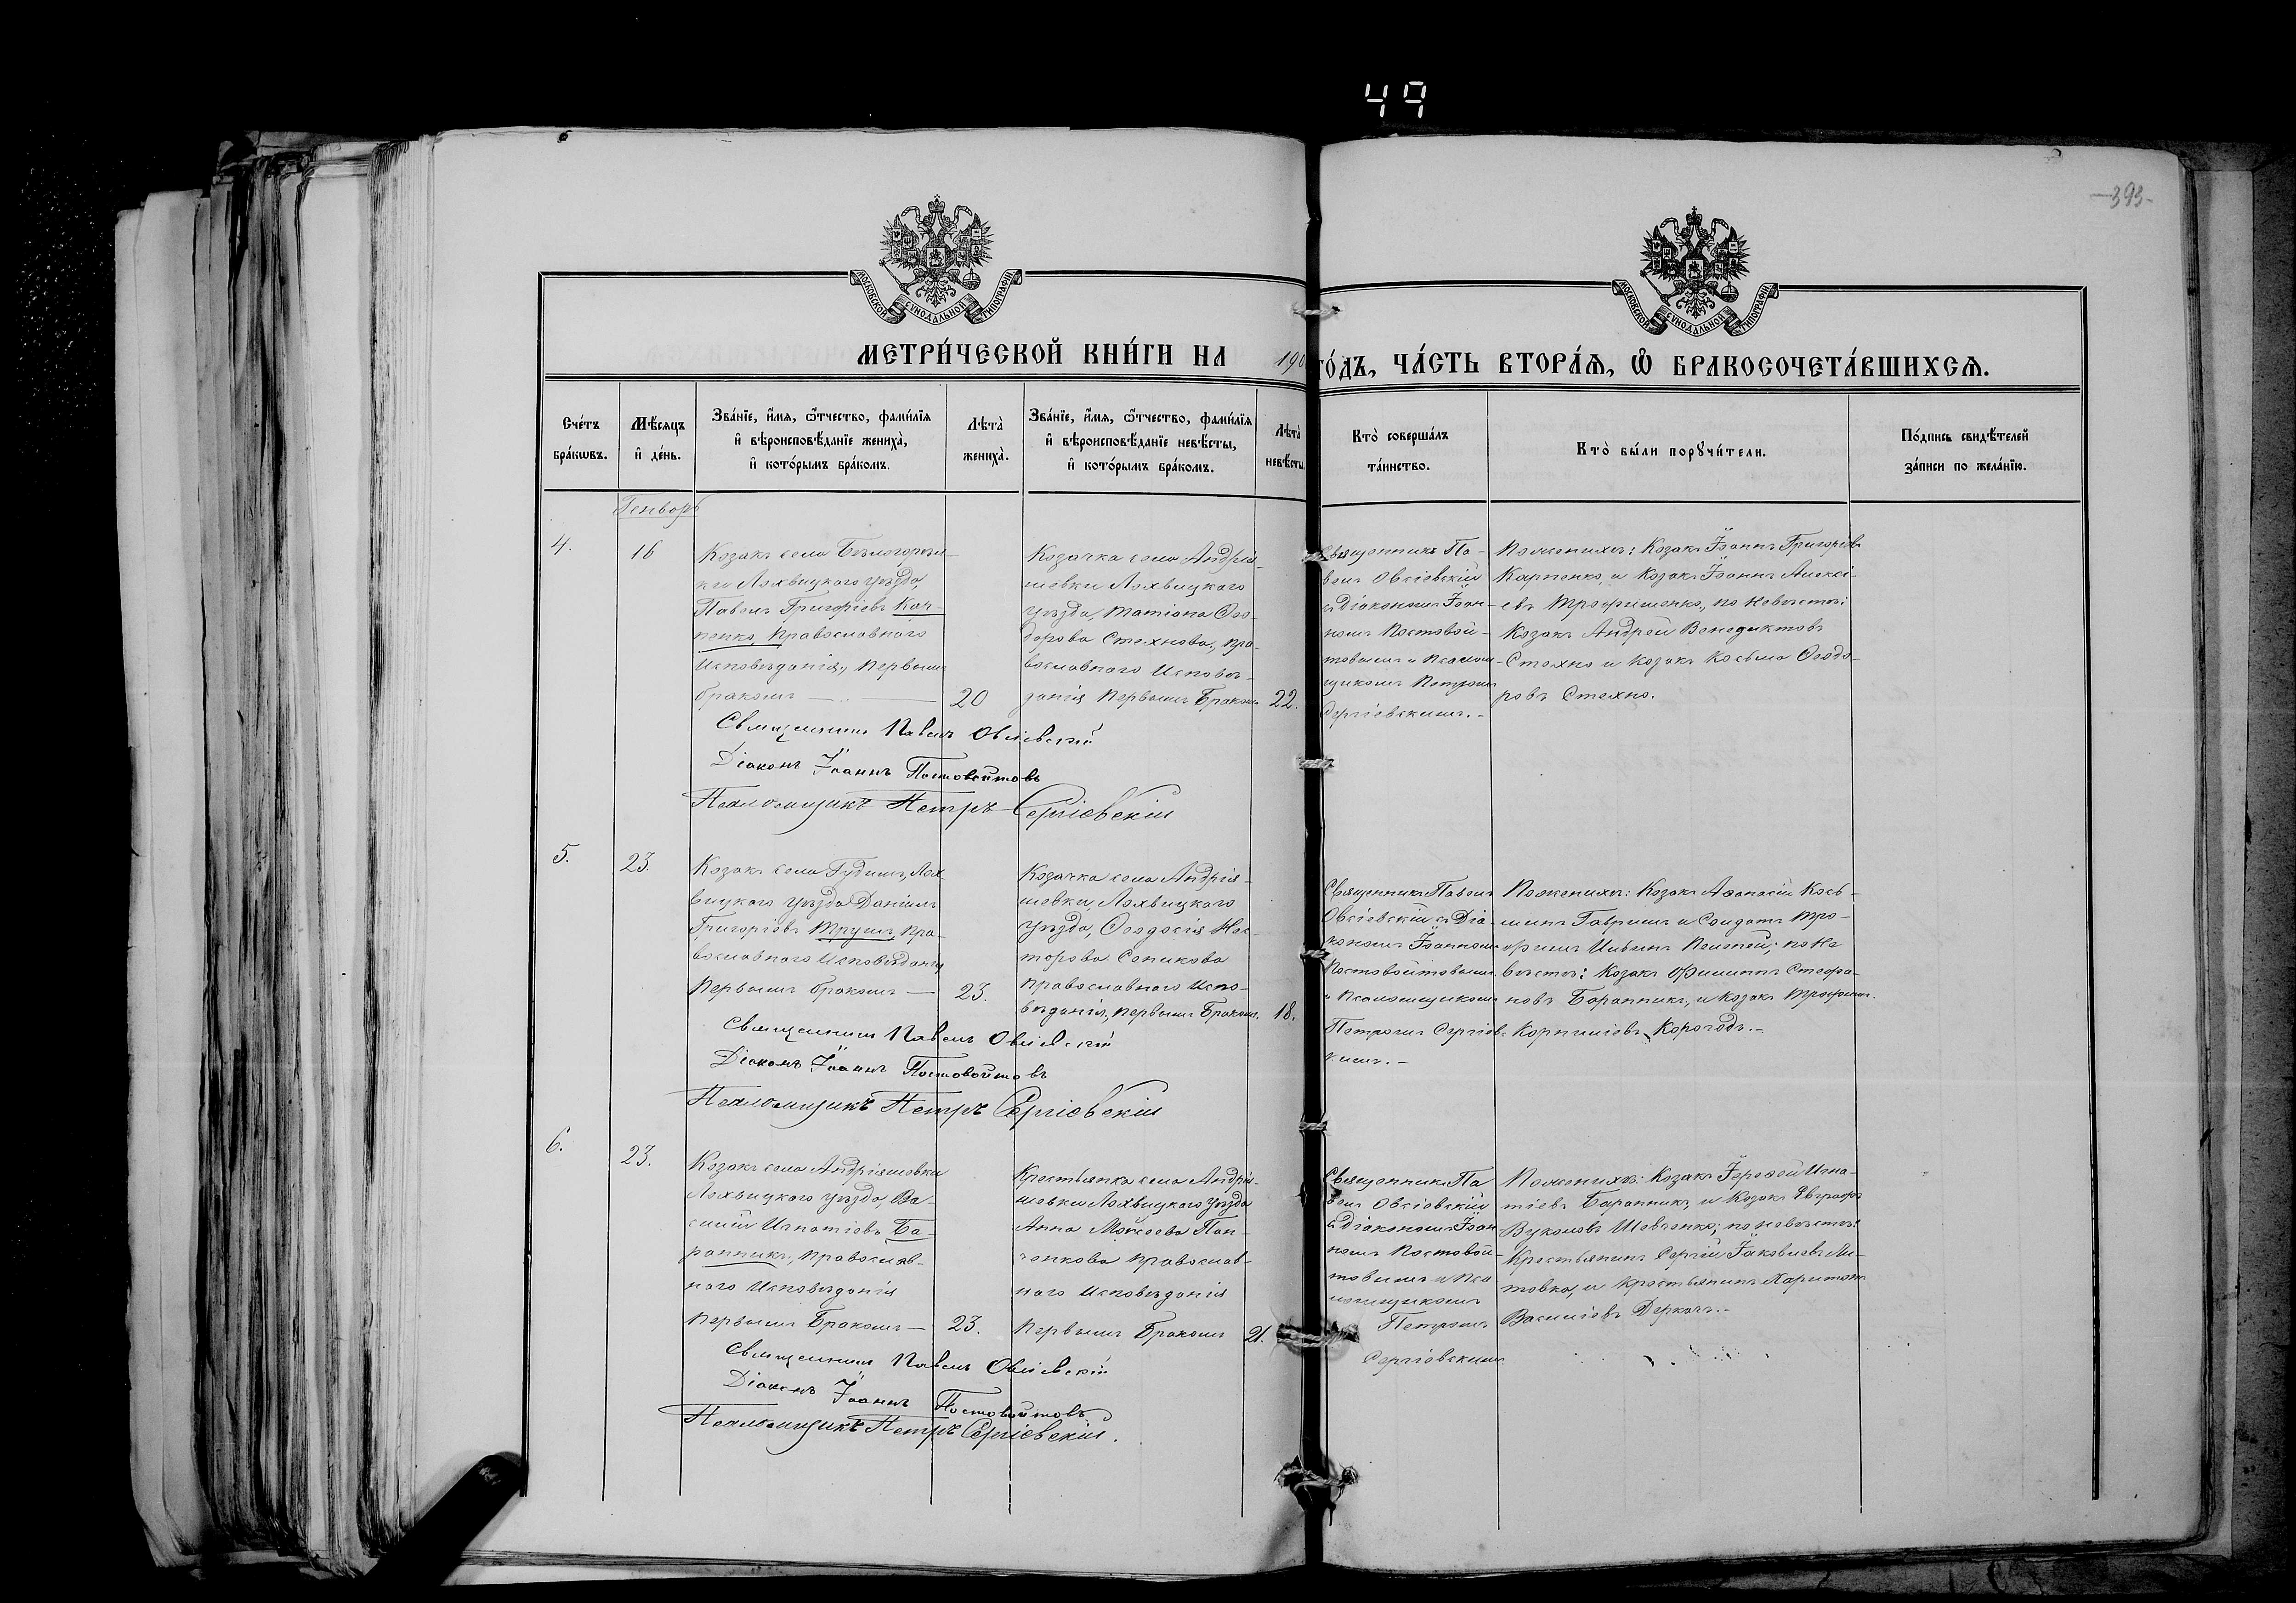 49
393
МОСКОВСКОЙ СѴНОДАЛЬНОЙ ТИПОГРАФІИ
МОСКОВСКОЙ СѴНОДАЛЬНОЙ ТИПОГРАФІИ
МЕТРИ́ЧЕСКОЙ КНИ́ГИ НА 190 ГО́ДЪ, ЧА́СТЬ ВТОРА́Я, Ѡ҆ БРАКОСОЧЕТА́ВШИХСѦ.
Сче́тъ
бра́кѡвъ.
Мѣ́сяцъ
и҆ де́нь.
Зва́нїе, и҆́мя, ѻ҆́тчество, фами́лїя
и҆ вѣроисповѣ́данїе жениха̀,
и҆ кото́рымъ бра́комъ.
Лѣта̀
жениха̀.
Зва́нїе, и҆́мя, ѻ҆́тчество, фами́лїя
и҆ вѣроисповѣ́данїе невѣ́сты,
и҆ кото́рымъ бра́комъ.
Лѣта̀
невѣ́сты.
Кто̀ соверша́лъ
та́инство.
Кто̀ бы́ли порꙋчи́тели.
По́дпись свидѣ́телей
за́писи по жела́нїю.
Генварь
4.
16
Козакъ села Бѣлогорѣл-
ки Лохвицкаго уѣзда
Павелъ Григоріевъ Кар-
пенко, православнаго
исповѣданія, первымъ
бракомъ
20
Козачка села Андрія-
шевки Лохвицкаго
уѣзда, Татіана Ѳео-
дорова Стехнова, пра-
вославнаго исповѣ-
данія первымъ бракомъ
22.
Священникъ Па-
велъ Овсіевскій
съ Діакономъ Іоан-
номъ Постовой-
товымъ и псалом-
щикомъ Петромъ
Сергіевскимъ.-
По женихѣ: Козакъ Іоаннъ Григоріевъ
Карпенко, и козакъ Іоаннъ Алексі-
евъ Трофименко, по невѣстѣ:
Козакъ Андрей Венедиктовъ
Стехно и козакъ Косьма Ѳеодо-
ровъ Стехно.
Священникъ Павелъ Овсіевскій
Діаконъ Іоаннъ Постовойтовъ
Псаломщикъ Петръ Сергіевскій
5.
23.
Козакъ села Гудимъ, Лох
вицкаго уѣзда Даніилъ
Григоріевъ Трушъ, пра-
вославнаго исповѣданія
первымъ бракомъ —
23.
Козачка села Андрія-
шевки, Лохвицкаго
уѣзда, Ѳеодосія Нес-
торова Сепикова
православнаго испо-
вѣданія, первымъ бракомъ.
18.
Священникъ Павелъ
Овсіевскій съ Діа-
кономъ Іоанномъ
Постовойтовымъ
и псаломщикомъ
Петромъ Сергіевс-
кимъ.-
По женихѣ: Козакъ Аѳанасій Кось-
минъ Гавришъ и Солдатъ Тро-
фимъ Ильинъ; по не
вѣстѣ: Козакъ Филиппъ Стефа-
новъ Баранникъ, и козакъ Трофимъ
Корниліевъ Корогодъ.-
Священникъ Павелъ Овсіевскій
Діаконъ Іоаннъ Постовойтовъ
Псаломщикъ Петръ Сергіевскій
6.
23.
Козакъ села Андріяшевки
Лохвицкаго уѣзда, Ва-
силій Игнатіевъ Ба-
ранникъ, православ-
наго исповѣданія
первымъ бракомъ —
23.
Крестьянка села Андрія-
шевки Лохвицкаго уѣзда
Анна Моисеева Пан-
ченкова православ-
наго исповѣданія
первымъ бракомъ
21.
Священникъ Па
велъ Овсіевскій
съ Діакономъ Іоан
номъ Постовой-
товымъ и пса
ломщикомъ
Петромъ
Сергіевскимъ
По женихѣ: Козакъ Іероѳей Игна-
тіевъ Баранникъ, и козакъ Евграфъ
Вуколовъ Шевченко; по невѣстѣ:
Крестьянинъ Сергій Іаковлевъ Ли-
товка, и крестьянинъ Харитонъ
Василіевъ Деркачъ.-
Священникъ Павелъ Овсіевскій
Діаконъ Іоаннъ Постовойтовъ
Псаломщикъ Петръ Сергіевскій.